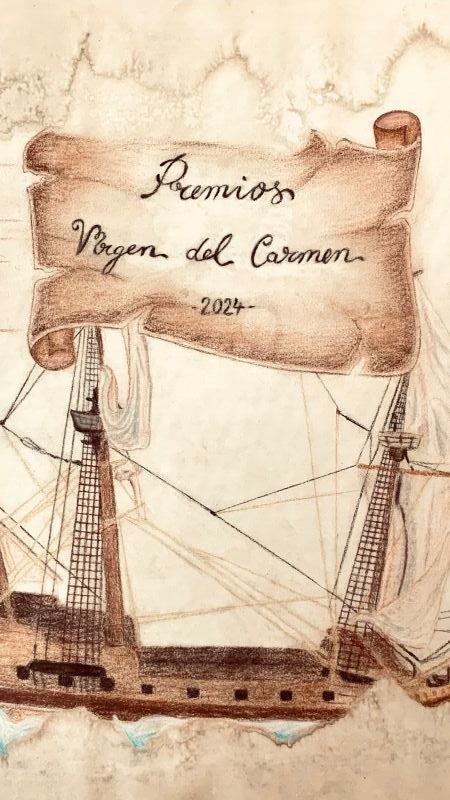 Premios
Virgen del Carmen
-2024-